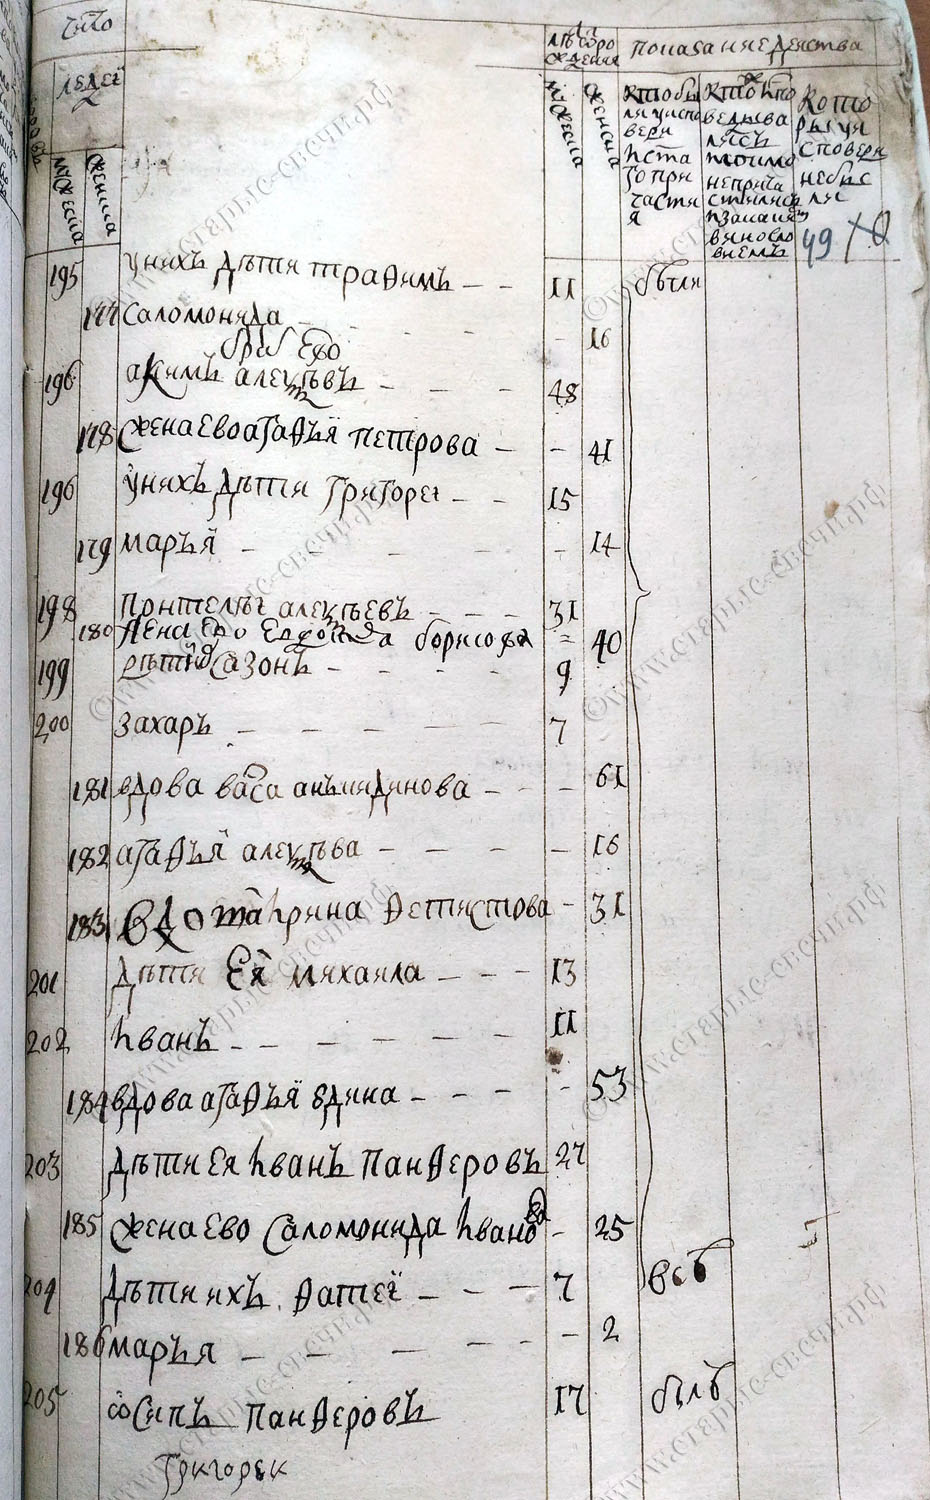 число
людей
мужеска
женска
лѣта ѿ рождения
мужеска
женска
показание действа
кто были у исповеди и ста го причастия
кто же исповедывались токмо не причастились и за каким виновловием
которые у исповеди не были
49
195 у них дѣти трафимъ — — 11 были
177 саломонида — 16
брат ево
196 акимъ алексѣевъ — — — 48
178 жена ево агафья петрова — — 41
196 у них дѣти григореи — — 15
179 марья — 14
198 пантелѣи алексѣевъ — — — 31
180 жена ево евдокия борисова = 40
199 дѣти сазонъ — 9
200 захаръ — 7
181 вдова васа — — — 61
182 агафья алексѣва — — — — 16
183 вдова ирина фетистова — 31
201 дѣти ея михаила — — — 13
202 иванъ — — — — — 11
184 вдова агафья — — — — 53
203 дѣти ея иванъ панферовъ 27
185 жена ево саломонида иванова — 25
204 дѣти ихъ фатеи — — — 7 всѣ
186 марья — — — — 2
205 осипъ панферовъ 17 былъ
григореи